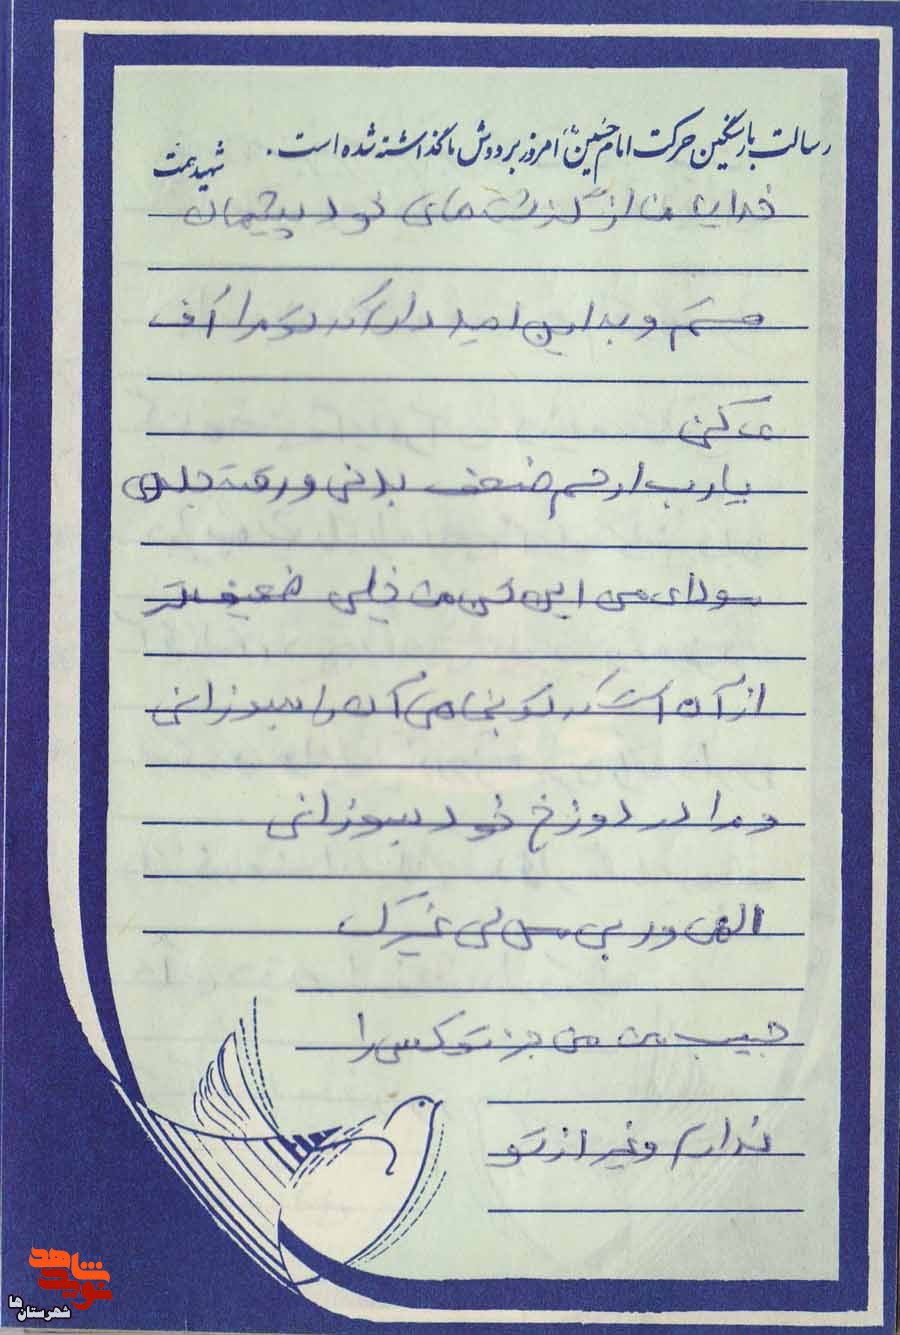 رسالت بار سنگین حرکت امام حسین امروز بر دوش ما گذاشته شده است.
شهید همت
خدایا من از گذشته های خود پشیمان
هستم و به این امید دارم که تو مرا
می کنی
یا رب ارحم ضعف بدنی و رقت جلدی
مولای من این تن من خیلی ضعیف تر
از آن است که تو بخواهی آن را بسوزانی
و مرا در دوزخ خود بسوزانی
الهی و ربی من لی غیرک
حبیب من من جز تو کسی را
ندارم و غیر از تو
نوید شاهد
شهرستان ها